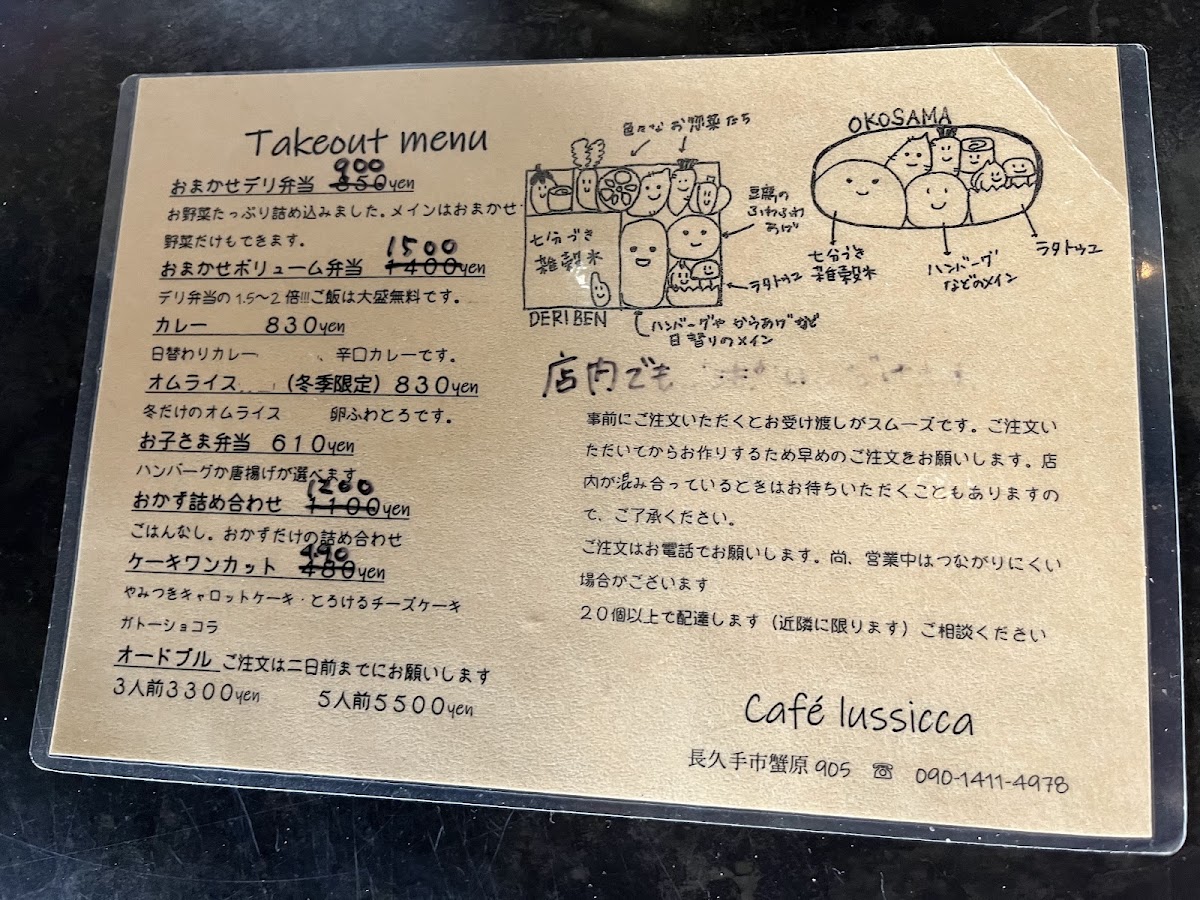 Takeout menu
900
おまかせデリ弁当 850yen
お野菜たっぷり詰め込みました。メインはおまかせ・
野菜だけもできます。
1500
おまかせボリューム弁当 1400yen
デリ弁当の1.5～2倍!!!ご飯は大盛無料です。
カレー 830yen
日替わりカレー 、辛口カレーです。
オムライス (冬季限定) 830yen
冬だけのオムライス 卵ふわとろです。
お子さま弁当 610yen
ハンバーグか唐揚げが選べます
1200
おかず詰め合わせ 1100yen
ごはんなし。おかずだけの詰め合わせ
490
ケーキワンカット 480yen
やみつきキャロットケーキ・とろけるチーズケーキ
ガトーショコラ
オードブル ご注文は二日前までにお願いします
3人前3300yen 5人前5500yen
色々なお惣菜たち
豆腐の
ふわふわ
あげ
七分づき
雑穀米
ラタトゥユ
DERIBEN
ハンバーグや からあげなど
日替りのメイン
OKOSAMA
七分づき
雑穀米
ハンバーグ
などのメイン
ラタトゥユ
店内でも
事前にご注文いただくとお受け渡しがスムーズです。ご注文い
ただいてからお作りするため早めのご注文をお願いします。店
内が混み合っているときはお待ちいただくこともありますの
で、ご了承ください。
ご注文はお電話でお願いします。尚、営業中はつながりにくい
場合がございます
20個以上で配達します（近隣に限ります）ご相談ください
Café lussicca
長久手市蟹原 905 ☎ 090-1411-4978